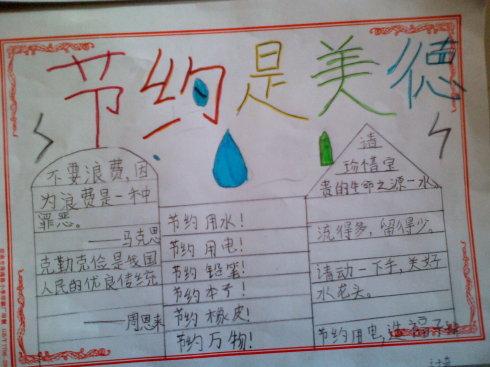 节约是美德
不要浪费,因
为浪费是一种
罪恶。
——马克思
克勤克俭是我国
人民的优良传统
——周恩来
节约用水！
节约用电！
节约铅笔！
节约本子！
节约橡皮！
节约万物！
请
珍惜宝
贵的生命之源—水。
流得多,留得少。
请动一下手,关好
水龙头。
节约用电,造福子